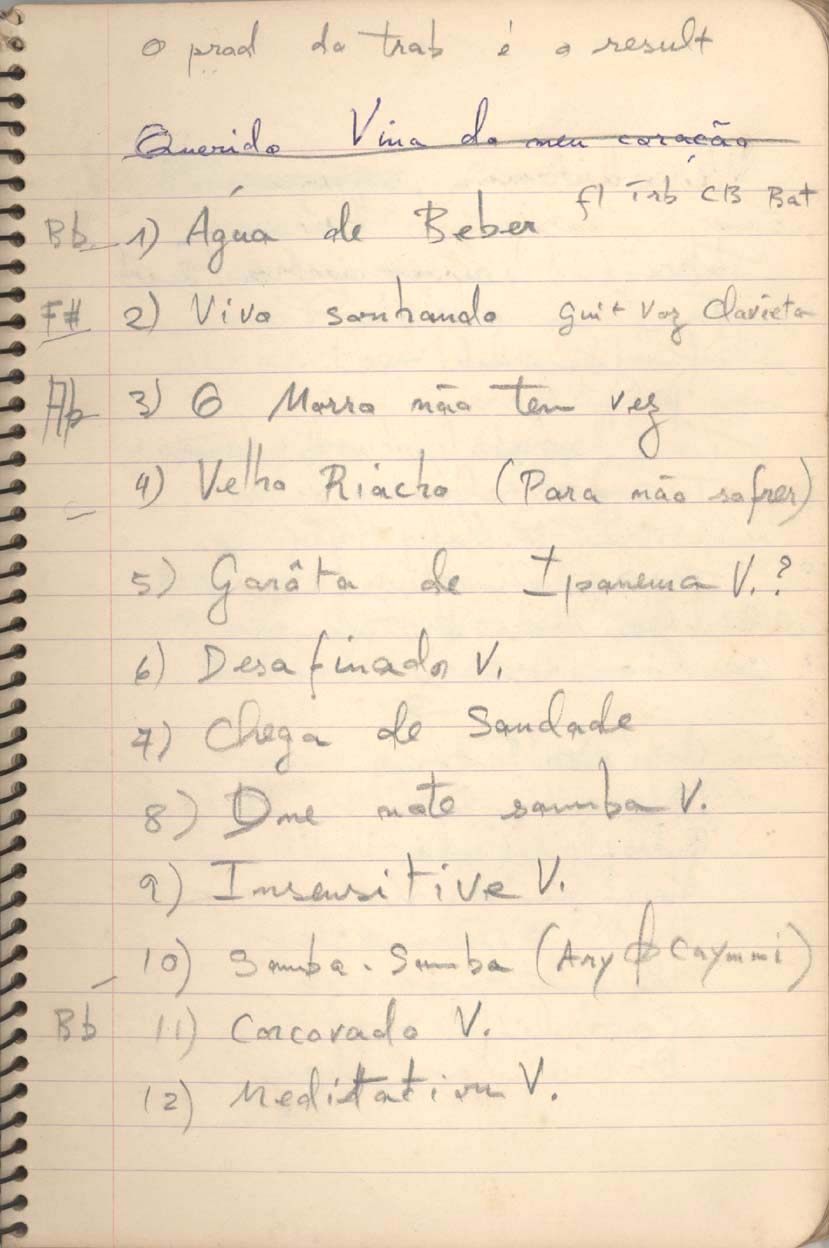 o prod do trab é o result
Querido Vina do meu coração
Bb 1) Água de Beber fl Trb CB Bat
F# 2) Vivo sonhando guit voz Clavieta
Ab 3) O Morro não tem vez
4) Velho Riacho (Para não sofrer)
5) Garôta de Ipanema V.?
6) Desafinado V.
7) Chega de Saudade
8) One note samba V.
9) Insensitive V.
10) Samba-Samba (Ary Caymmi)
Bb 11) Corcovado V.
12) Meditation V.